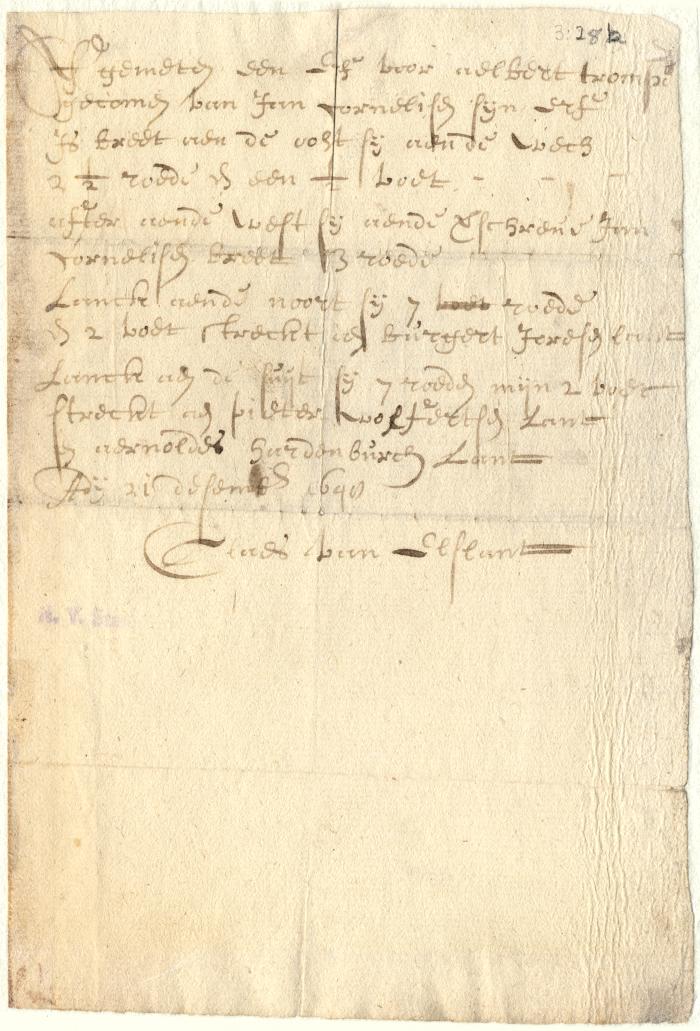 3:28b
Af gemeten een Erf voor aelbert trompr
gecomen van Jan Cornelisen syn erf
Is breet aen de oost sy aende wech
2 1/2 roede en een 1/2 voet - - -
after aende west sy aende Jan
Cornelisen breet 3 roede
Lanck aende noort sy 7 voet roede
en 2 voet streckt aen burgert Joresen lant
Lanck aen de suyt sy 7 roeden myn 2 voet
streckt aen pieter wolfertsen Lant
en aernoldes hardenburch Lant
Ady 21 desemb
Claes van Elslant
N. Y.